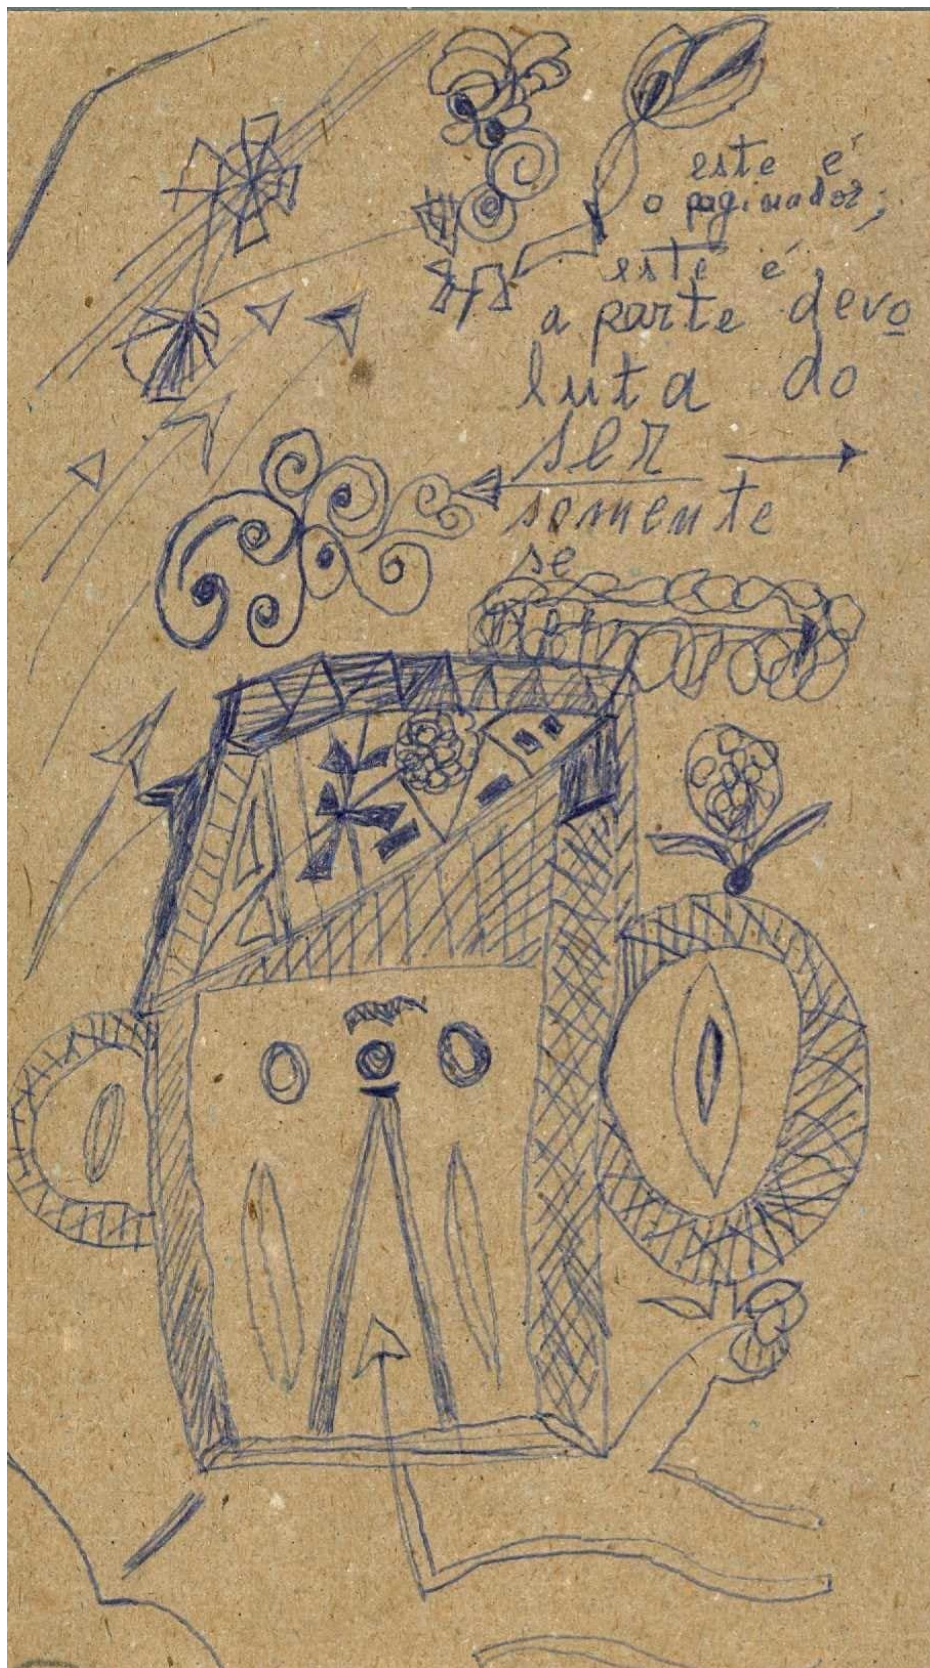 este é
o paginador;
este é,
a parte devo
luta do
ser
somente
se